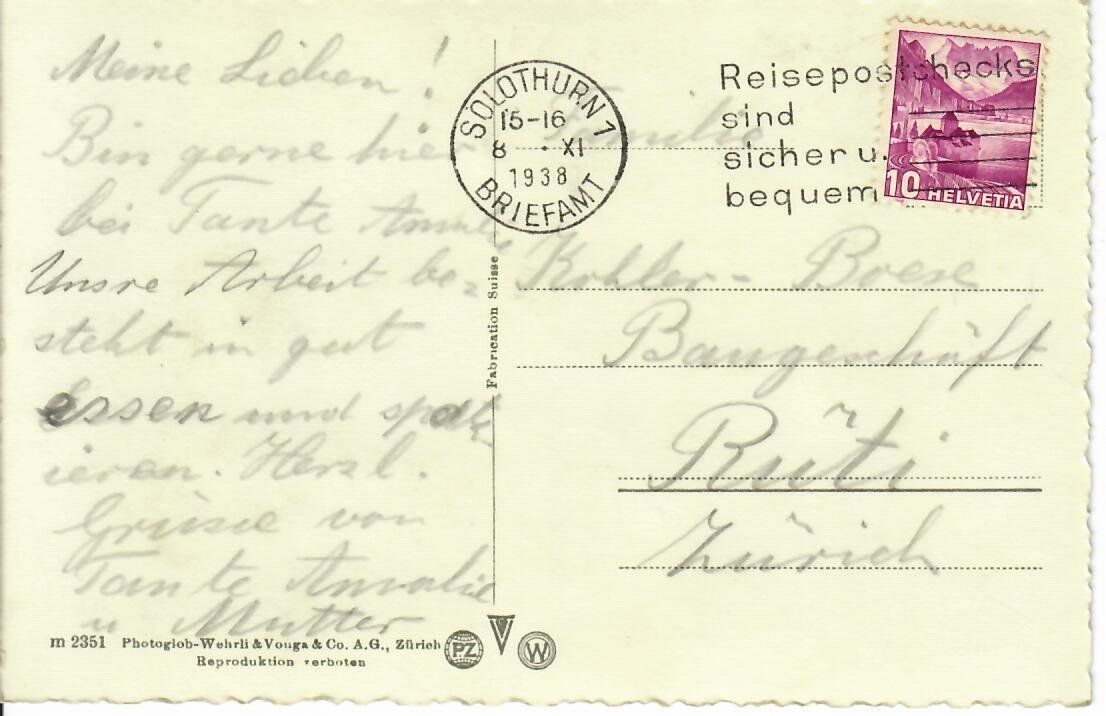 Meine Lieben!
Bin gerne hier
bei Tante Annel
Unsre Arbeit be=
steht in gut
essen und spaz
ieren. Herzl.
Grüsse von
Tante Amalie
u Mutter
m 2351 Photoglob-Wehrli & Vouga & Co. A.G., Zürich
Reproduktion verboten
PZ
W
Fabrication Suisse
SOLOTHURN 1
15-16
8 · XI
1938
BRIEFAMT
Reisepostchecks
sind
sicher u.
bequem
10 HELVETIA
Familie
Kohler - Boese
Baugeschäft
Rüti
Zürich